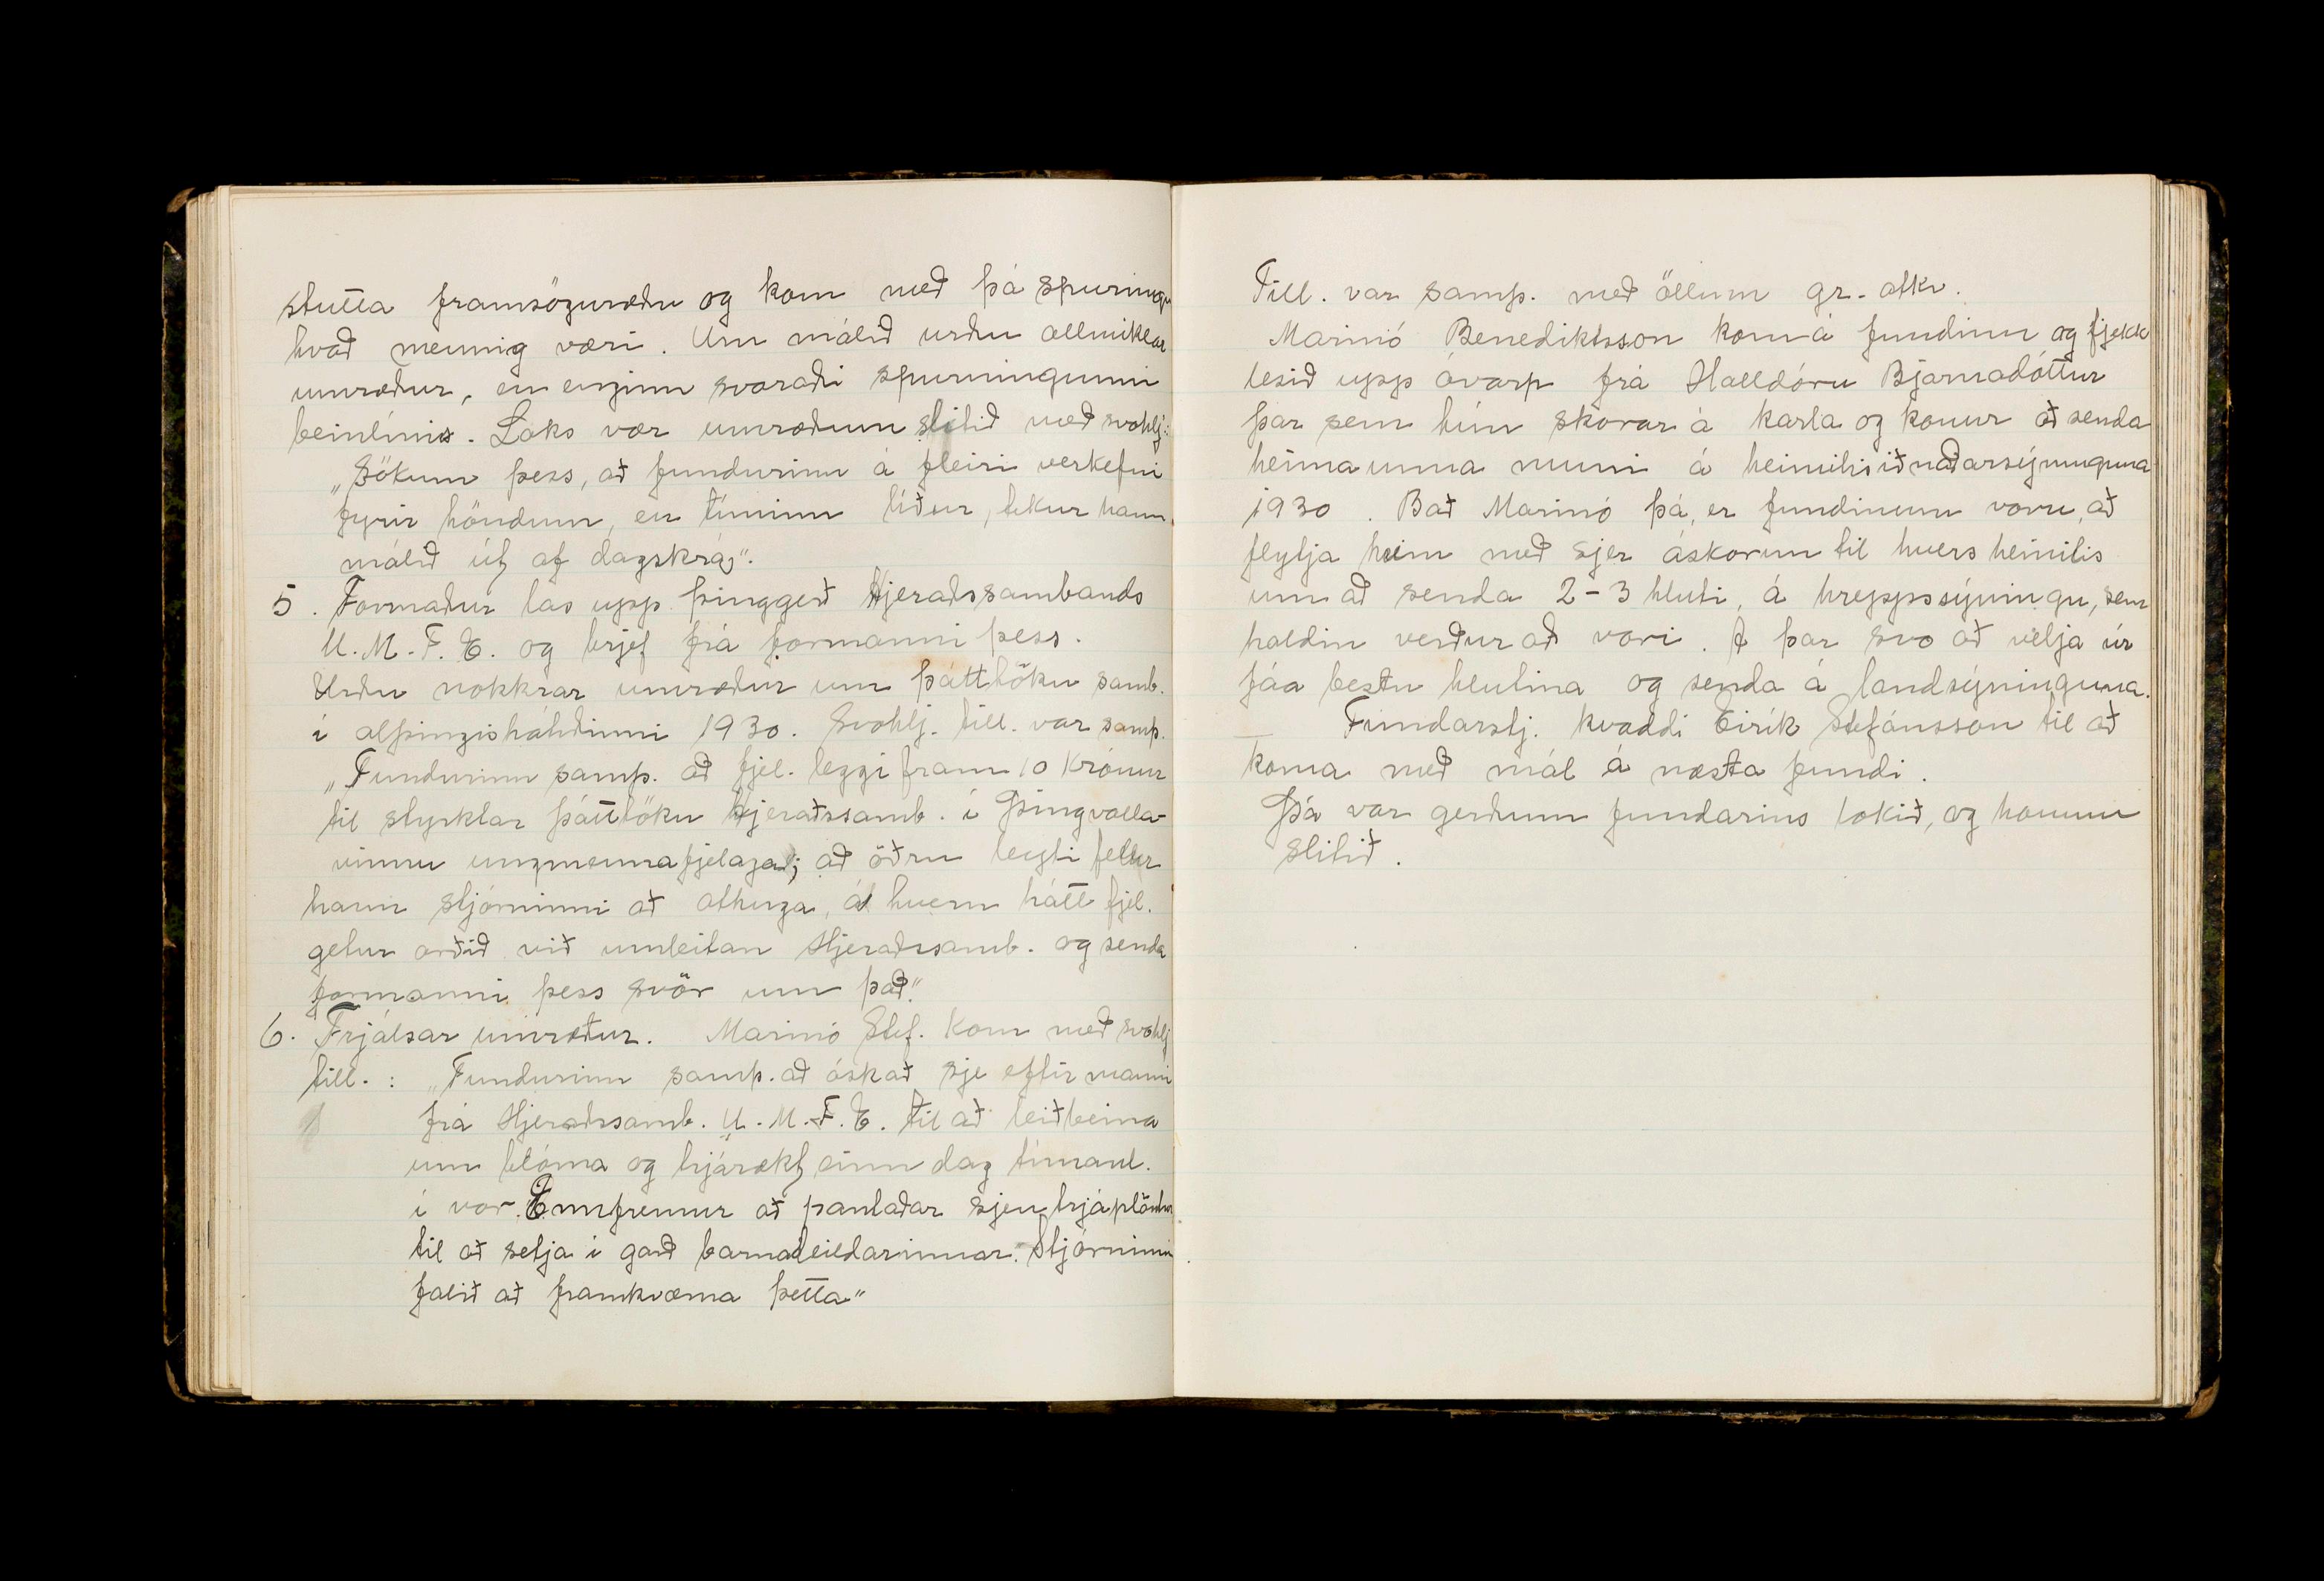 stutta framsöguræðu og kom með þá spurningu
hvað menning væri. Um málið urðu allmiklar
umræður, en enginn svaraði spurningunni
beinlínis. Loks var umræðum slitið með svohlj:
„Sökum þess, að fundurinn á fleiri verkefni
fyrir höndum, en tíminn líður, tekur hann
málið út af dagskrá;"
5. Formaður las upp þinggerð Hjeraðssambands
U.M.F.E. og brjef frá formanni þess.
Urðu nokkrar umræður um þátttöku samb.
í alþingishátíðinni 1930. Svohlj. till. var samþ.
„Fundurinn samþ. að fjel. leggi fram 10 krónur
til styrktar þátttöku Hjeraðssamb. í Þingvalla-
vinnu ungmennafjelaga; að öðru leyti felur
hann stjórninni að athuga, á hvern hátt fjel.
getur orðið við umleitan Hjeraðssamb. og senda
formanni þess svör um það."
6. Frjálsar umræður. Marinó Stef. kom með svohlj
till.: „Fundurinn samþ. að óskað sje eftir manni
frá Hjeraðssamb. U.M.F.E. til að leiðbeina
um blóma og trjárækt einn dag tímanl.
í vor. Ennfremur að pantaðar sjeu trjáplöntur
til að setja í garð barnadeildarinnar. Stjórninni
falið að framkvæma þetta"
Till. var samþ. með öllum gr. atkv.
Marinó Benediktsson kom á fundinn og fjekk
lesið upp ávarp frá Halldóru Bjarnadóttur
þar sem hún skorar á karla og konur að senda
heimaunna muni á heimilisiðnaðarsýninguna
1930. Bað Marinó þá, er fundinum voru, að
flytja heim með sjer áskorun til hvers heimilis
um að senda 2-3 hluti, á hreppssýningu, sem
haldin verður að vori. Á þar svo að velja úr
fáa bestu hlutina og senda á landsýninguna.
Fundarstj. kvaddi Eirík Stefánsson til að
koma með mál á næsta fundi.
Þá var gerðum fundarins lokið, og honum
slitið.